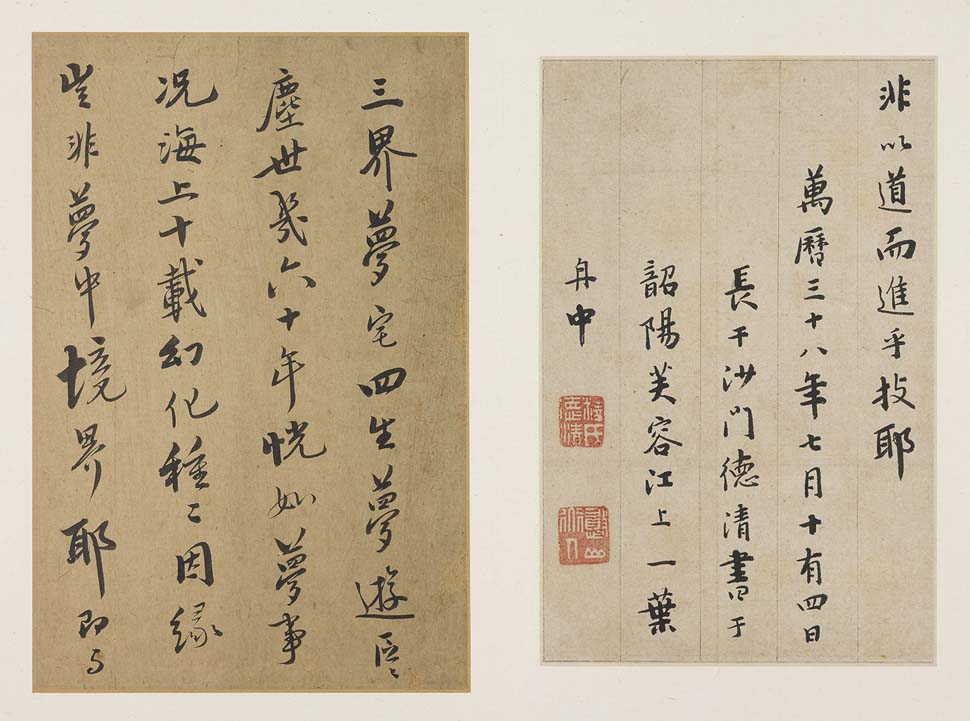 非以道而進乎技耶
萬曆三十八年七月十有四日
長干沙門德清書于
韶陽芙容江上一葉
舟中
釋氏德清
憨山
三界夢宅四生夢遊區〻
塵世幾六十年恍如夢事
况海上十載幻化種〻因緣
豈非夢中境界耶即与